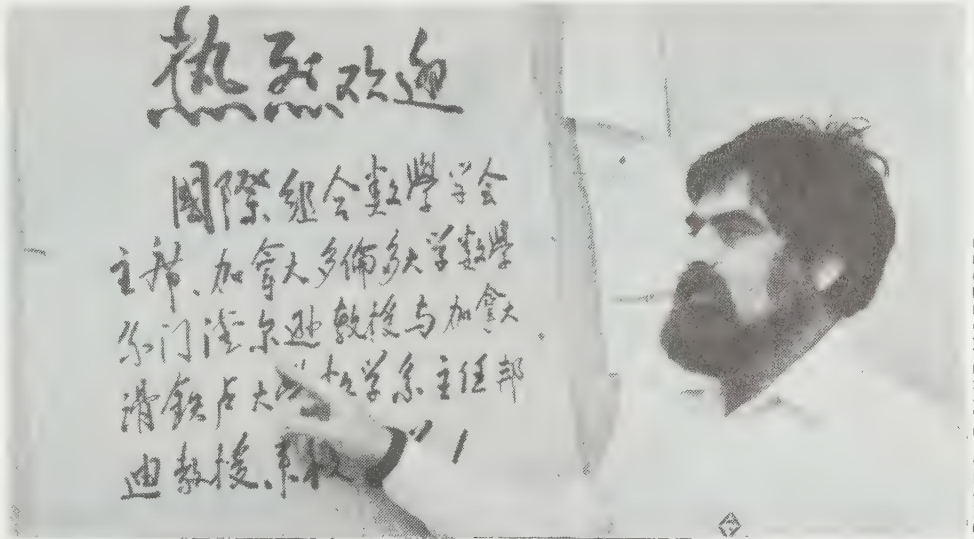 热烈欢迎
國際組合数學学会
主席、加拿大多倫多大学数學
系门德尔逊教授与加拿大
滑鉄卢大学数学系主任邦
迪教授来校